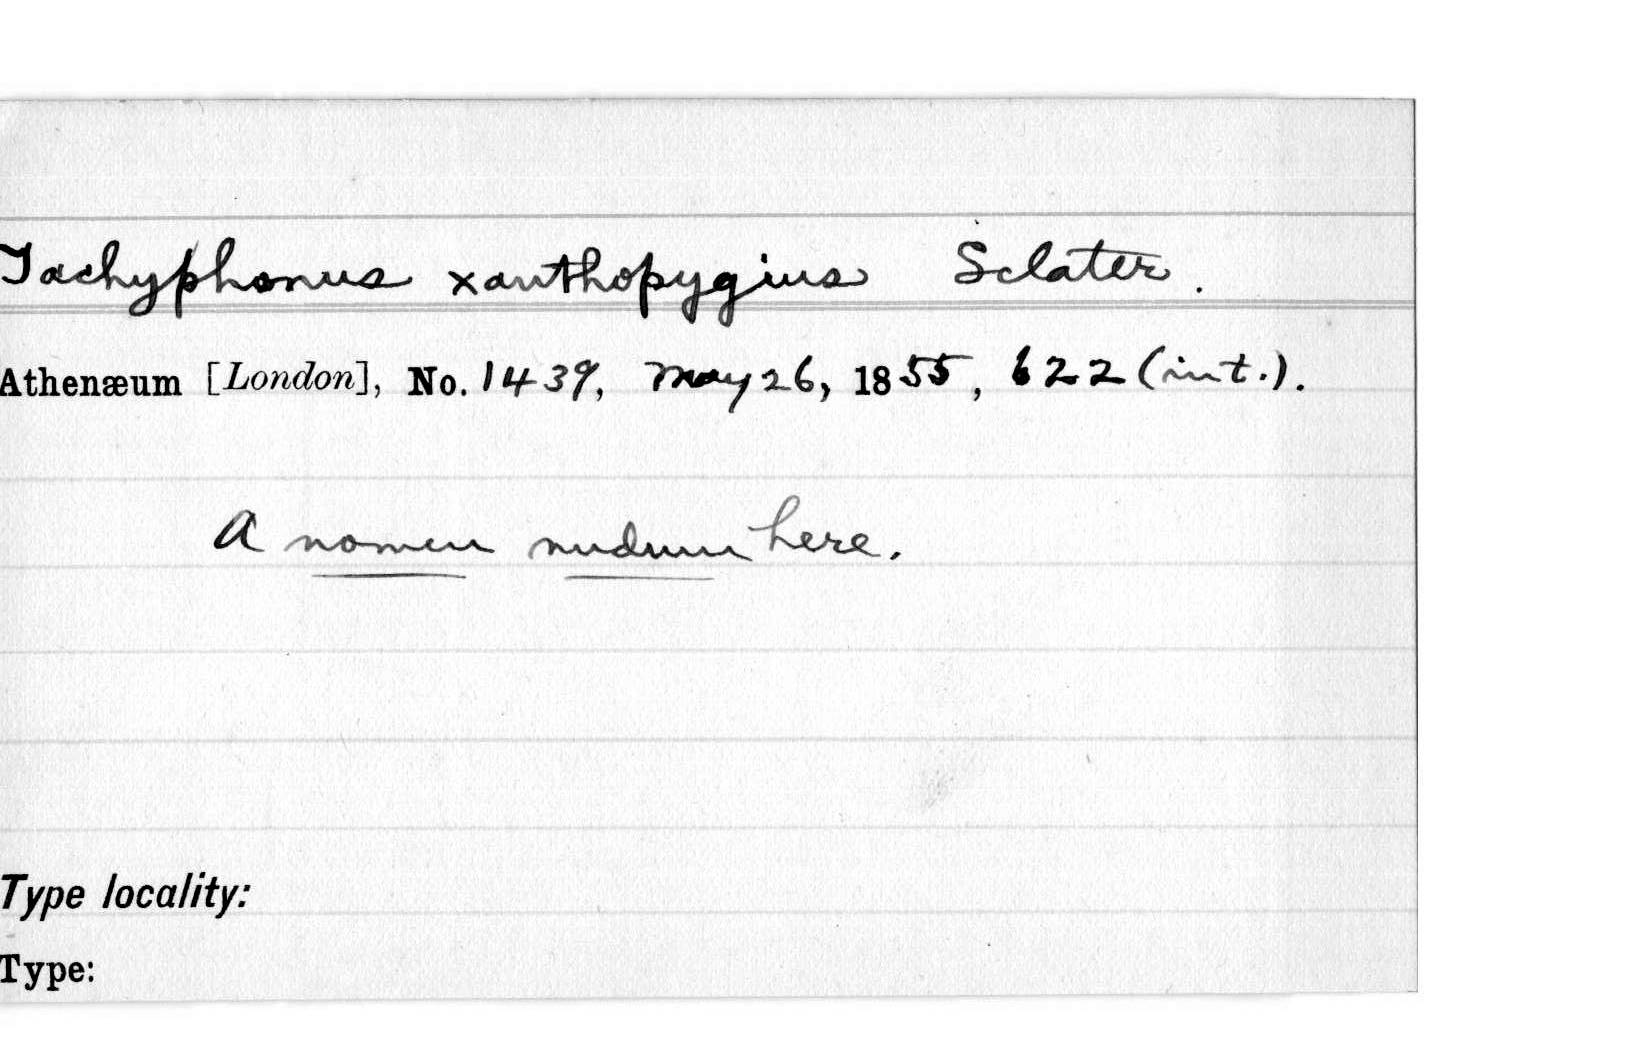 Tachyphonus xanthopygius Sclater.
Athenæum [London], No. 1439, May 26, 1855, 622 (int.).
A nomen nudum here.
Type locality:
Type: